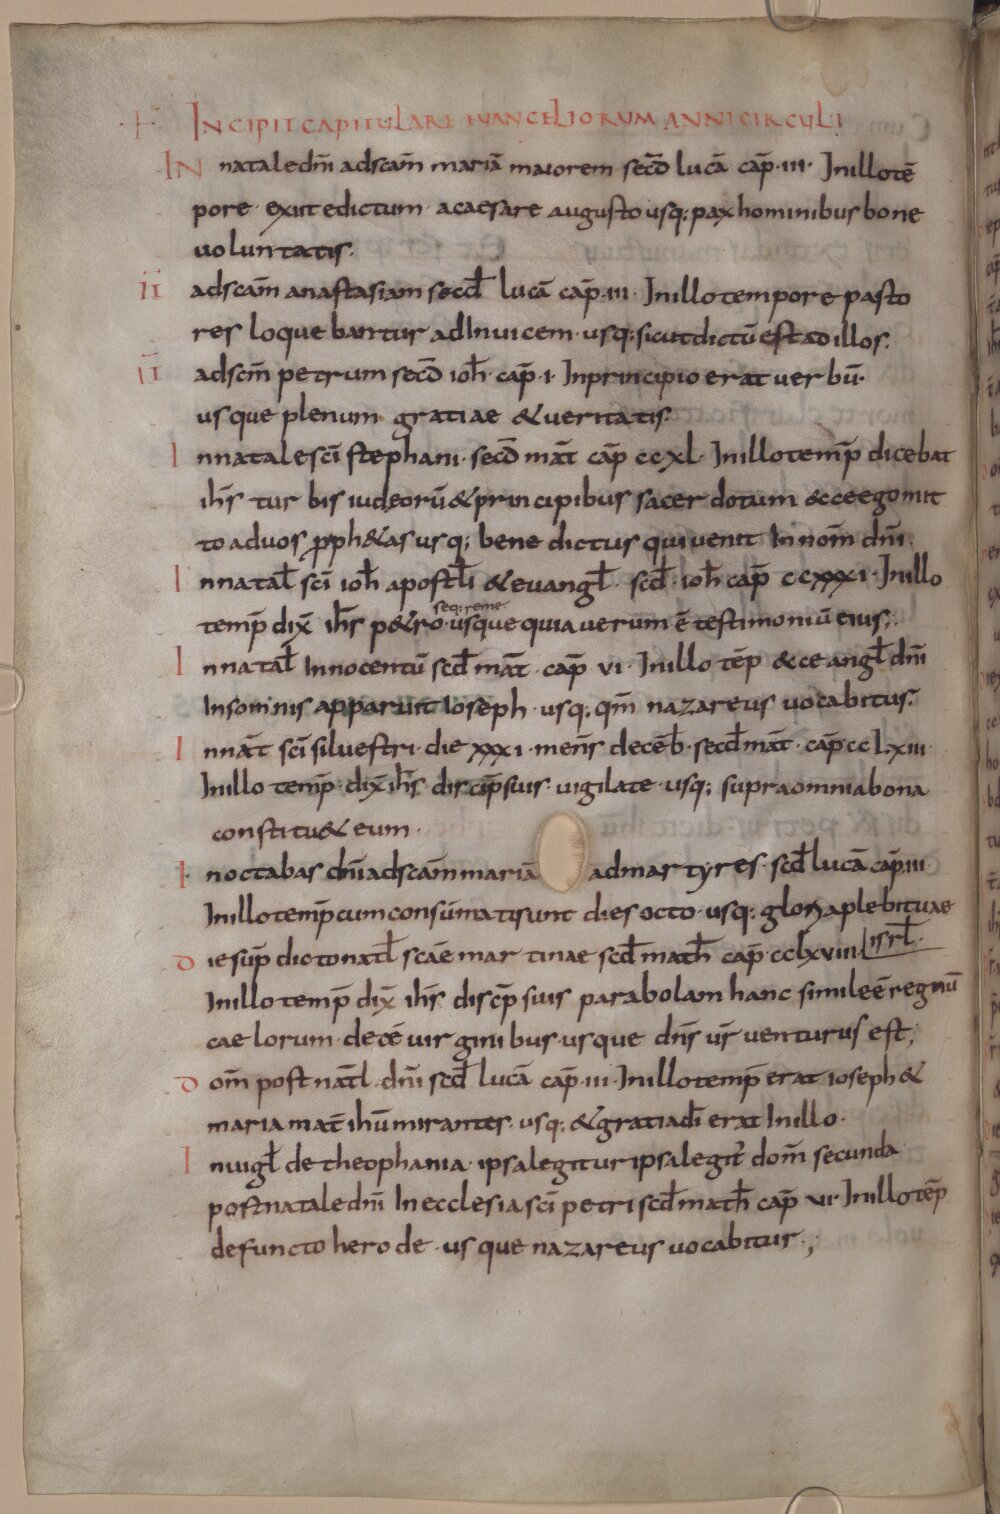 + INCIPIT CAPITULARE EUANGELIORUM ANNI CIRCULI
IN natale dn̄i ad scam̄ mariā maiorem sec̄d lucā cap̄ ·iii· In illo tē
pore · exiit edictum · a caesare augusto usq; pax hominibus bone
uoluntatis·
II ad scam̄ anastasiam secd̄ lucā cap̄ ·iii· In illo tempore pasto
res loquebantur ad inuicem · usq; sicut dictū est ad illos·
II ad scm̄ petrum secd̄ ioh̄ · cap̄ ·i· In principio erat uerbū·
usque plenum gratiae & ueritatis·
In natale sc̄i stephani · secd̄ māt cap̄ ccxl· In illo temp̄ dicebat
ih̄s turbis iudeorū & principibus sacerdotum &ce ego mit
to ad uos pph&as usq; benedictus qui uenit In nom̄ dn̄i
In natal̄ sc̄i ioh̄ apostl̄i & euangl̄ · scd̄ · ioh̄ cap̄ ccxxxi· In illo
temp̄ dix̄ ih̄s p&ro · seq:reme usque quia uerum ē testimoniū eius;
In natal̄ Innocentū scd̄ māt · cap̄ vi· In illo tēp &ce angl̄ dn̄i
In somnis apparuit Ioseph · usq; qm̄ nazareus uocabitus·
In nāt sc̄i siluestri · die xxxi · mens̄ decēb · secd̄ māt · cap̄ cclxiii·
In illo temp̄ · dix̄ ih̄s discip̄ suis · uigilate · usq; supra omnia bona
constitu& eum ·
In octabas dn̄i ad scam̄ mariā ad martyres · scd̄ lucā cap̄ iii
In illo temp̄ cum consūmati sunt dies octo · usq; gloriā plebi tuae
isrl̄·
die sup̄ dicto natl̄ scāe martinae scd̄ math̄ cap̄ · cclxviii
In illo temp̄ dix̄ ih̄s discp̄ suis parabolam hanc simile ē regnū
caelorum · decē uirginibus · usque dn̄s ur̄ uenturus est;
dom̄ post nātl · dn̄i scd̄ lucā cap̄ ·iii· In illo temp̄ erat ioseph &
maria māt ih̄u mirantes · usq; & gratia dī erat In illo·
In uigl̄ de theophania · ipsa legitur ipsa legit̄ dom̄ secunda
post natale dn̄i In ecclesia sc̄i petri scd̄ math̄ cap̄ vi· In illo tēp
defuncto herode · usque nazareus uocabitur;